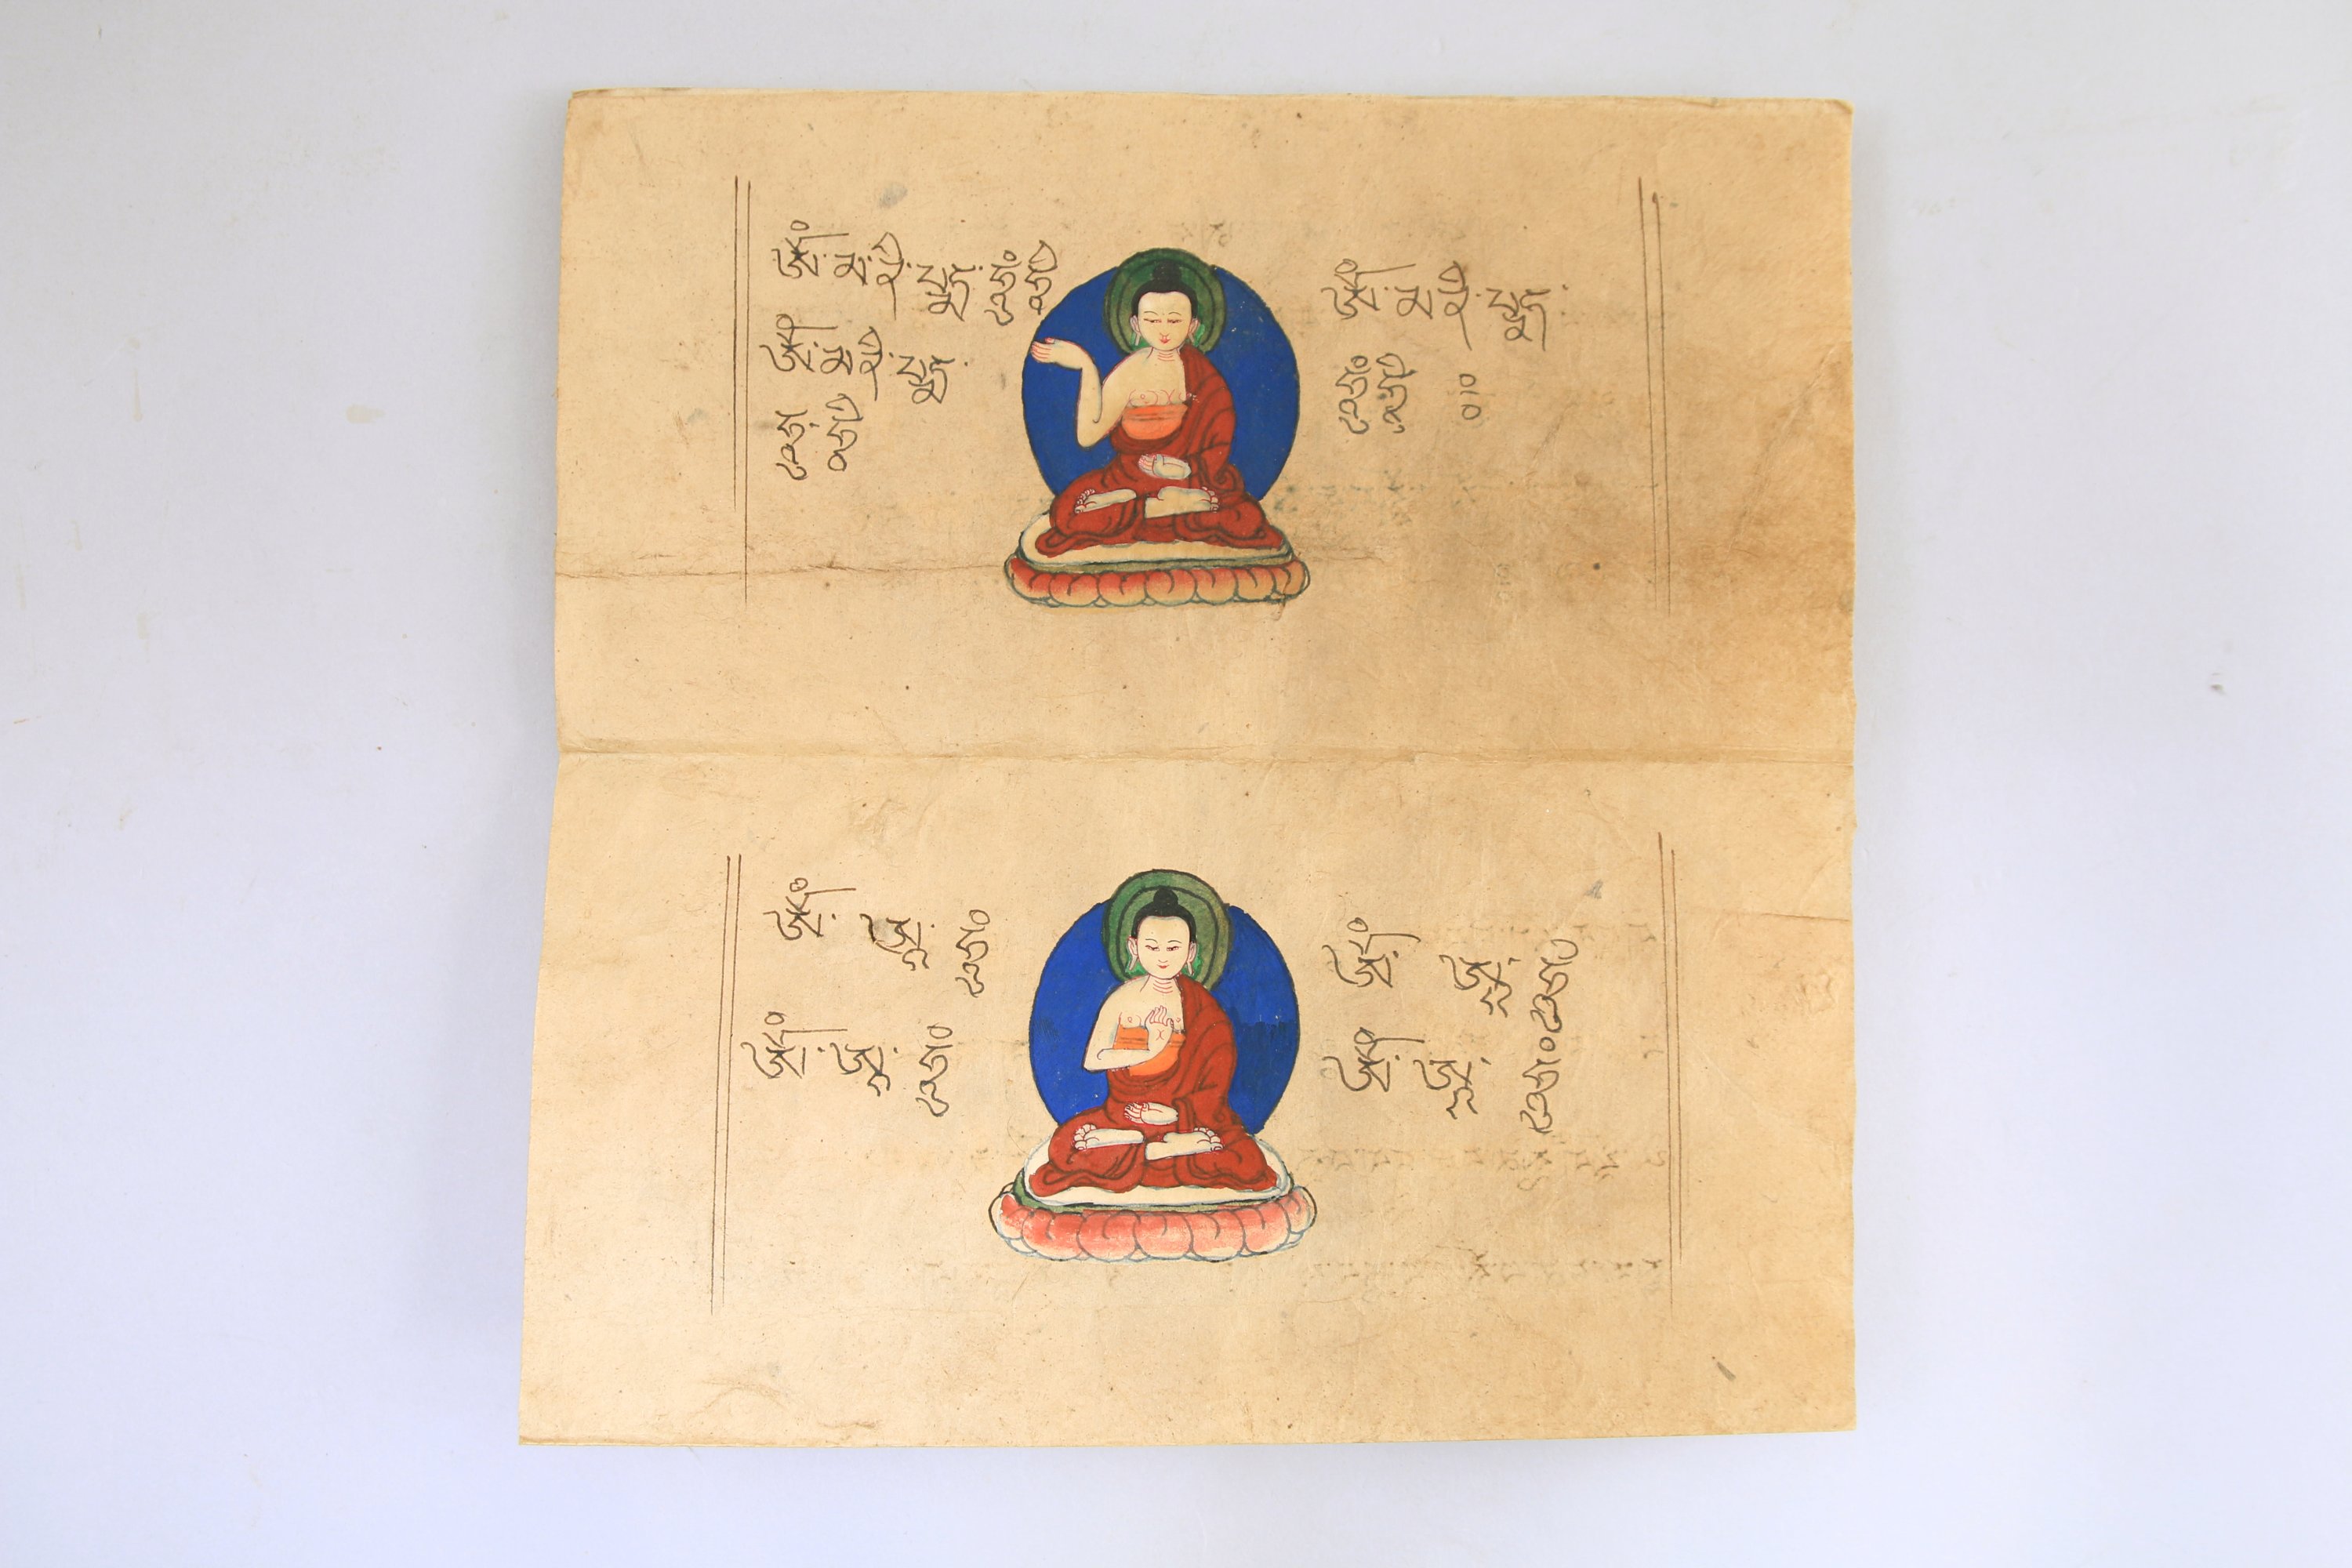 ཨོཾ་མ་ཎི་པདྨེ་ཧཱུྃ་ཧྲཱི
ཨོཾ་མ་ཎི་པདྨེ་
ཧཱུྃ་ཧྲཱི
ཨོཾ་མ་ཎི་པདྨེ་
ཧཱུྃ་ཧྲཱི
ཨོཾ་ཨཱཿ་ཧཱུྃ
ཨོཾ་ཨཱཿ་ཧཱུྃ
ཨོཾ་ཨཱཿ་ཧཱུྃ
ཨོཾ་ཨཱཿ་ཧཱུྃ